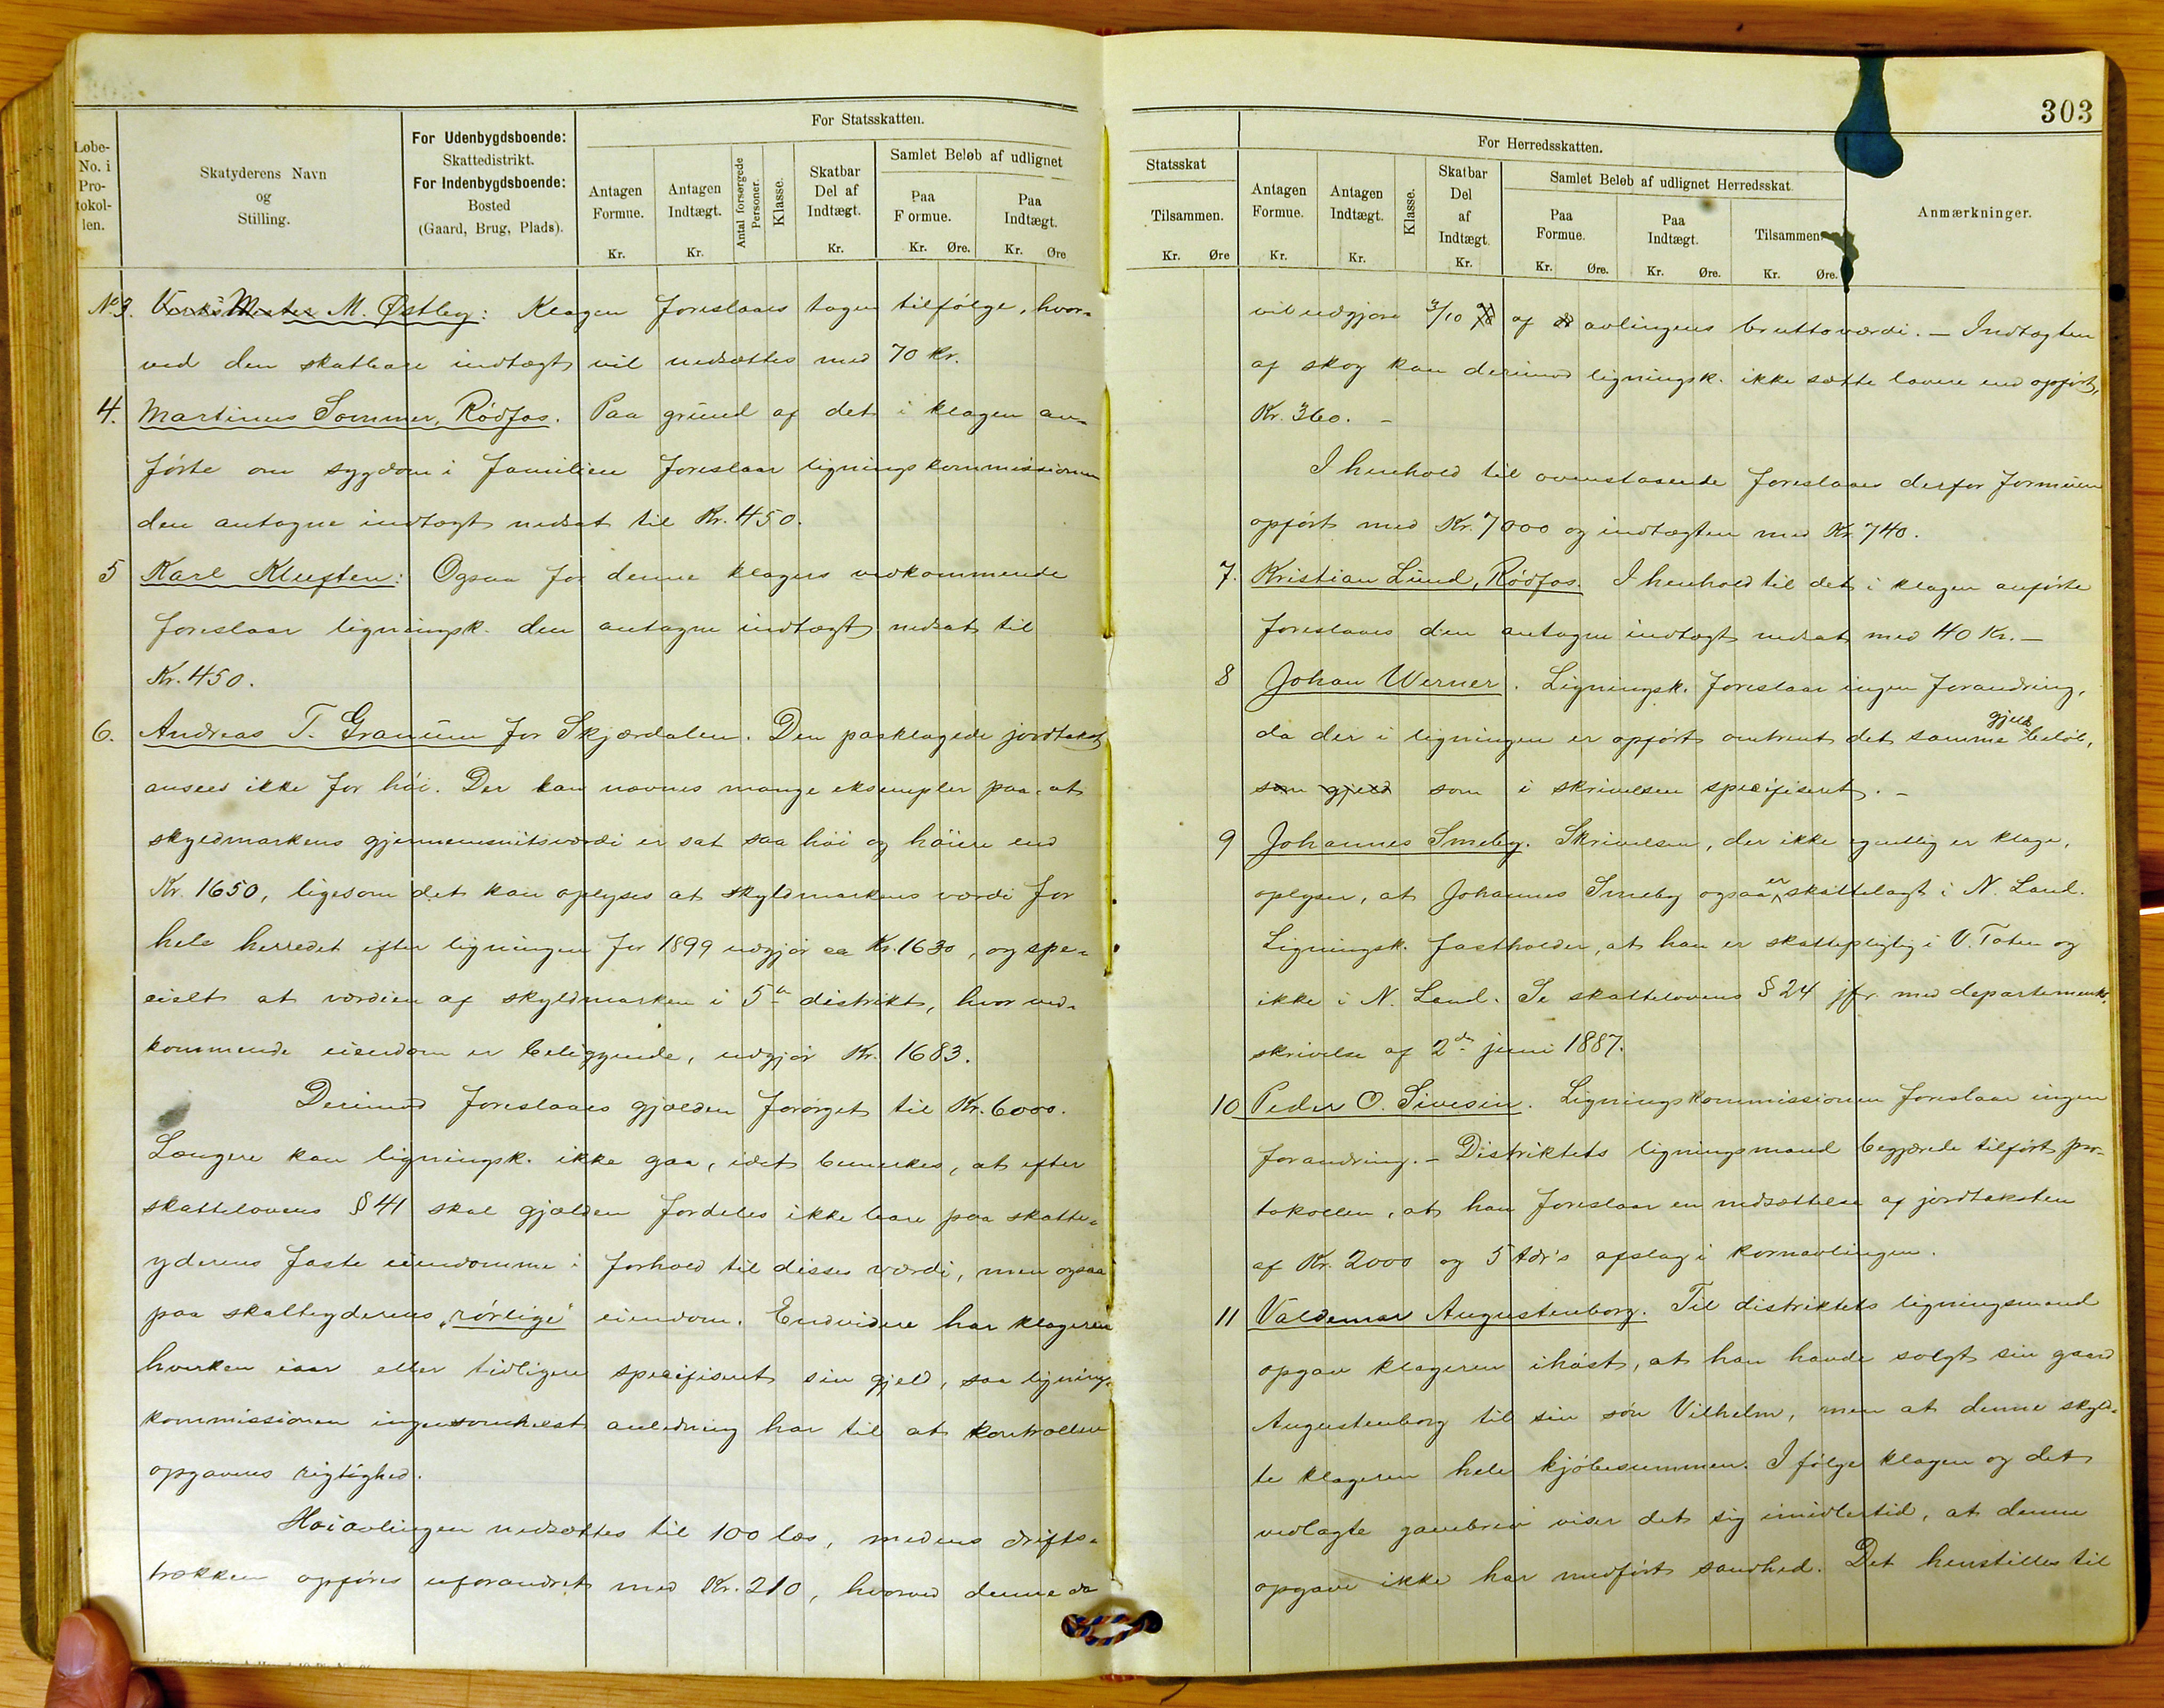 303
Løbe-
No. i
Pro-
tokol-
len.
Skatyderens Navn
og
Stilling.
For Udenbygdsboende:
Skattedistrikt.
For Indenbygdsboende:
Bosted
(Gaard, Brug, Plads).
For Statsskatten.
Antagen
Formue.
Kr.
Antagen
Indtægt.
Kr.
Antal forsørgede
Personer.
Klasse.
Skatbar
Del af
Indtægt.
Kr.
Samlet Beløb af udlignet
Paa
Formue.
Kr. Øre.
Paa
Indtægt.
Kr. Øre
No 3. Verks Mester M. Østby: Klagen foreslaaes tagen tilfölge, hvor-
ved den skatbare indtægt vil nedsættes med 70 kr.
4. Martinus Sommer, Rödfos. Paa grund af det i klagen an-
förte om sygdom i familien foreslaar ligningskommissionen
den antagne indtægt nedsat til Kr. 450.
5 Karl Kluften: Ogsaa for denne klagers vedkommende
foreslaar ligningsk. den antagne indtægt nedsat til
Kr. 450.
6. Andreas T. Granum for Skjærdalen. Den paaklagede jordtakst
ansees ikke for höi. Der kan nævnes mange eksempler paa, at
skyldmarkens gjennemsnitsværdi er sat saa höi og höiere end
Kr. 1650, ligesom det kan oplyses at skyldmarkens værdi for
hele herredet efter ligningen for 1899 udgjör ca Kr. 1630, og spe-
cielt at værdien af skyldmarken i 5te distrikt, hvor ved-
kommende eiendom er beliggende, udgjör Kr. 1683.
Derimod foreslaaes gjælden forörget til Kr. 6000.
Længere kan ligningsk. ikke gaa, idet bemerkes, at efter
skattelovens § 41 skal gjælden fordeles ikke bare paa skatte-
yderens faste eiendomme i forhold til disses værdi, men ogsaa
paa skatteyderens "rörlige" eiendom. Endvidere har klageren
hverken iaar eller tidligere specifiseret sin gjeld, saa lignings-
kommissionen ingensomhelst anledning har til at kontrollere
opgavens rigtighed.
Höiavlingen nedsættes til 100 læs, medens drifts-
trækken opföres uforandret med Kr. 210, hvorved denne da
Statsskat
Tilsammen.
Kr. Øre
For Herredsskatten.
Antagen
Formue.
Kr.
Antagen
Indtægt.
Kr.
Klasse.
Skatbar
Del
af
Indtægt.
Kr.
Samlet Beløb af udlignet Herredsskat.
Paa
Formue.
Kr. Øre.
Paa
Indtægt.
Kr. Øre.
Tilsammen.
Kr. Øre.
Anmærkninger.
vil udgjöre 3/10 af avlingens bruttoværdi. — Indtægten
af skog kan derimod ligningsk. ikke sætte lavere end opfört,
Kr. 360. —
I henhold til ovenstaaende foreslaaes derfor formuen
opfört med Kr. 7000 og indtægten med Kr. 740.
7. Kristian Lund, Rödfos. I henhold til det i klagen anförte
foreslaaes den antagne indtægt nedsat med 40 Kr. —
8 Johan Werner. Ligningsk. foreslaar ingen forandring,
da der i ligningen er opfört omtrent det samme gjelds beløb,
som gjeld som i skrivelsen specifiseret. —
9 Johannes Smeby. Skrivelsen, der ikke egentlig er klage,
oplyser, at Johannes Smeby ogsaa er skattelagt i N. Land.
Ligningsk. fastholder, at han er skattepligtig i V. Toten og
ikke i N. Land. Se skattelovens § 24 jfr. med departements-
skrivelse af 2den juni 1887.
10 Peder O. Sivesin. Ligningskommissionen foreslaar ingen
forandring. — Distriktets ligningsmand begjærede tilfört pro-
tokollen, at han foreslaar en nedsættelse af jordtaksten
af Kr. 2000 og 5 tdr's afslag i kornavlingen.
11 Valdemar Augustenborg. Til distriktets ligningsmand
opgav klageren ihöst, at han havde solgt sin gaard
Augustenborg til sin sön Vilhelm, men at denne skyld-
te klageren hele kjöbesummen. I fölge klagen og det
vedlagte gavebrev viser det sig imidlertid, at denne
opgave ikke har medfört sandhed. Det henstilles til